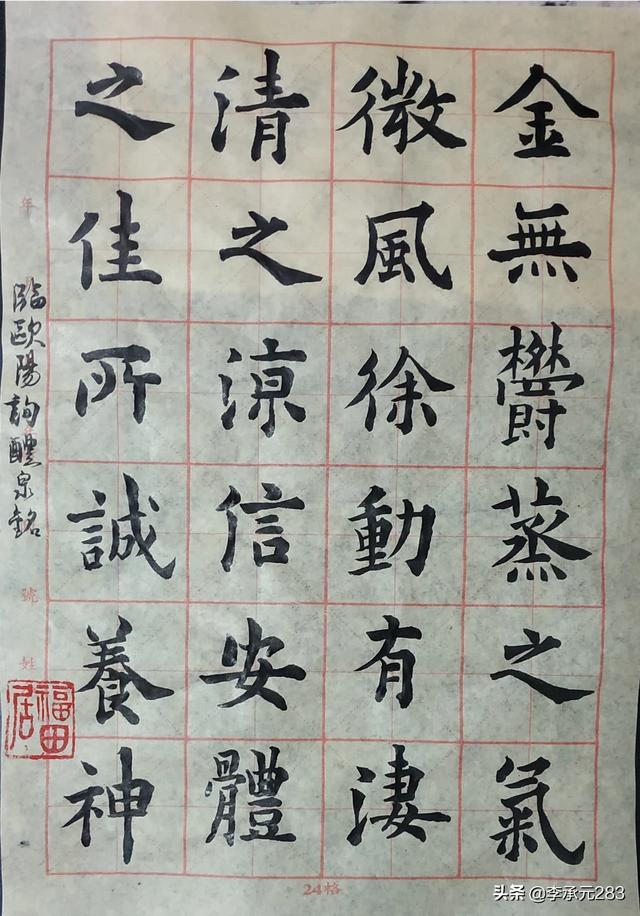 金無鬱蒸之氣
微風徐動有淒
清之涼信安體
之佳所誠養神
臨歐陽詢醴泉銘
年
號
姓
福田居
24格
头条 @李承元283